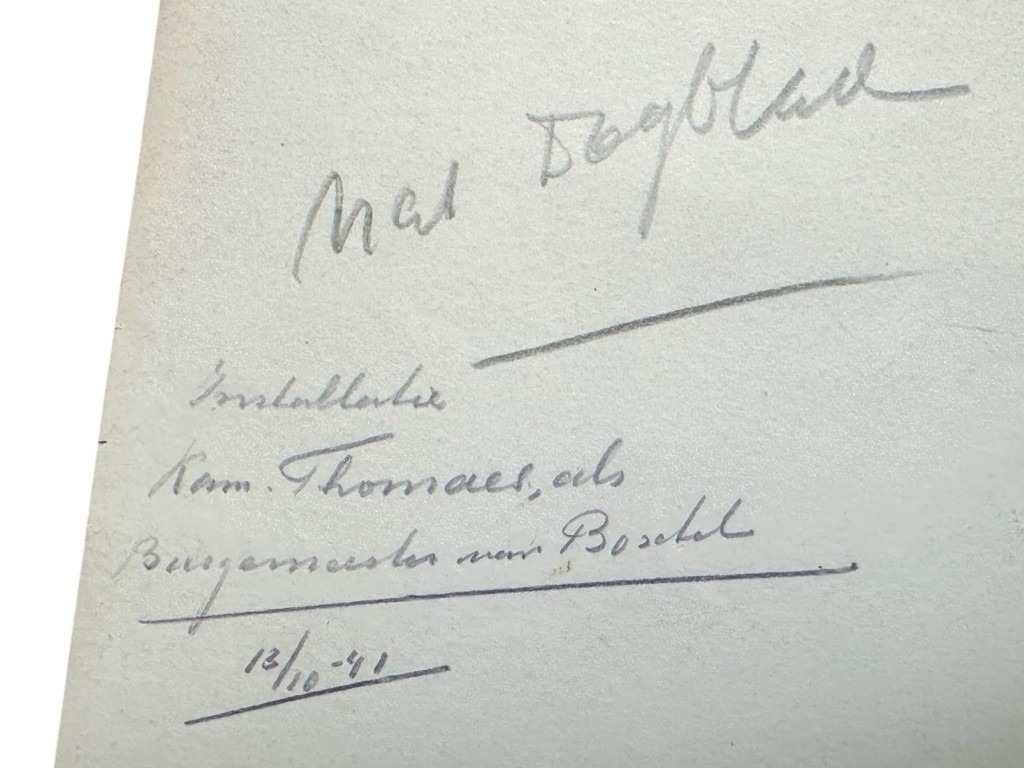 Nat Dagblad
Installatie
Kam. Thomaes, als
Burgemeester van Boxtel
13/10-41